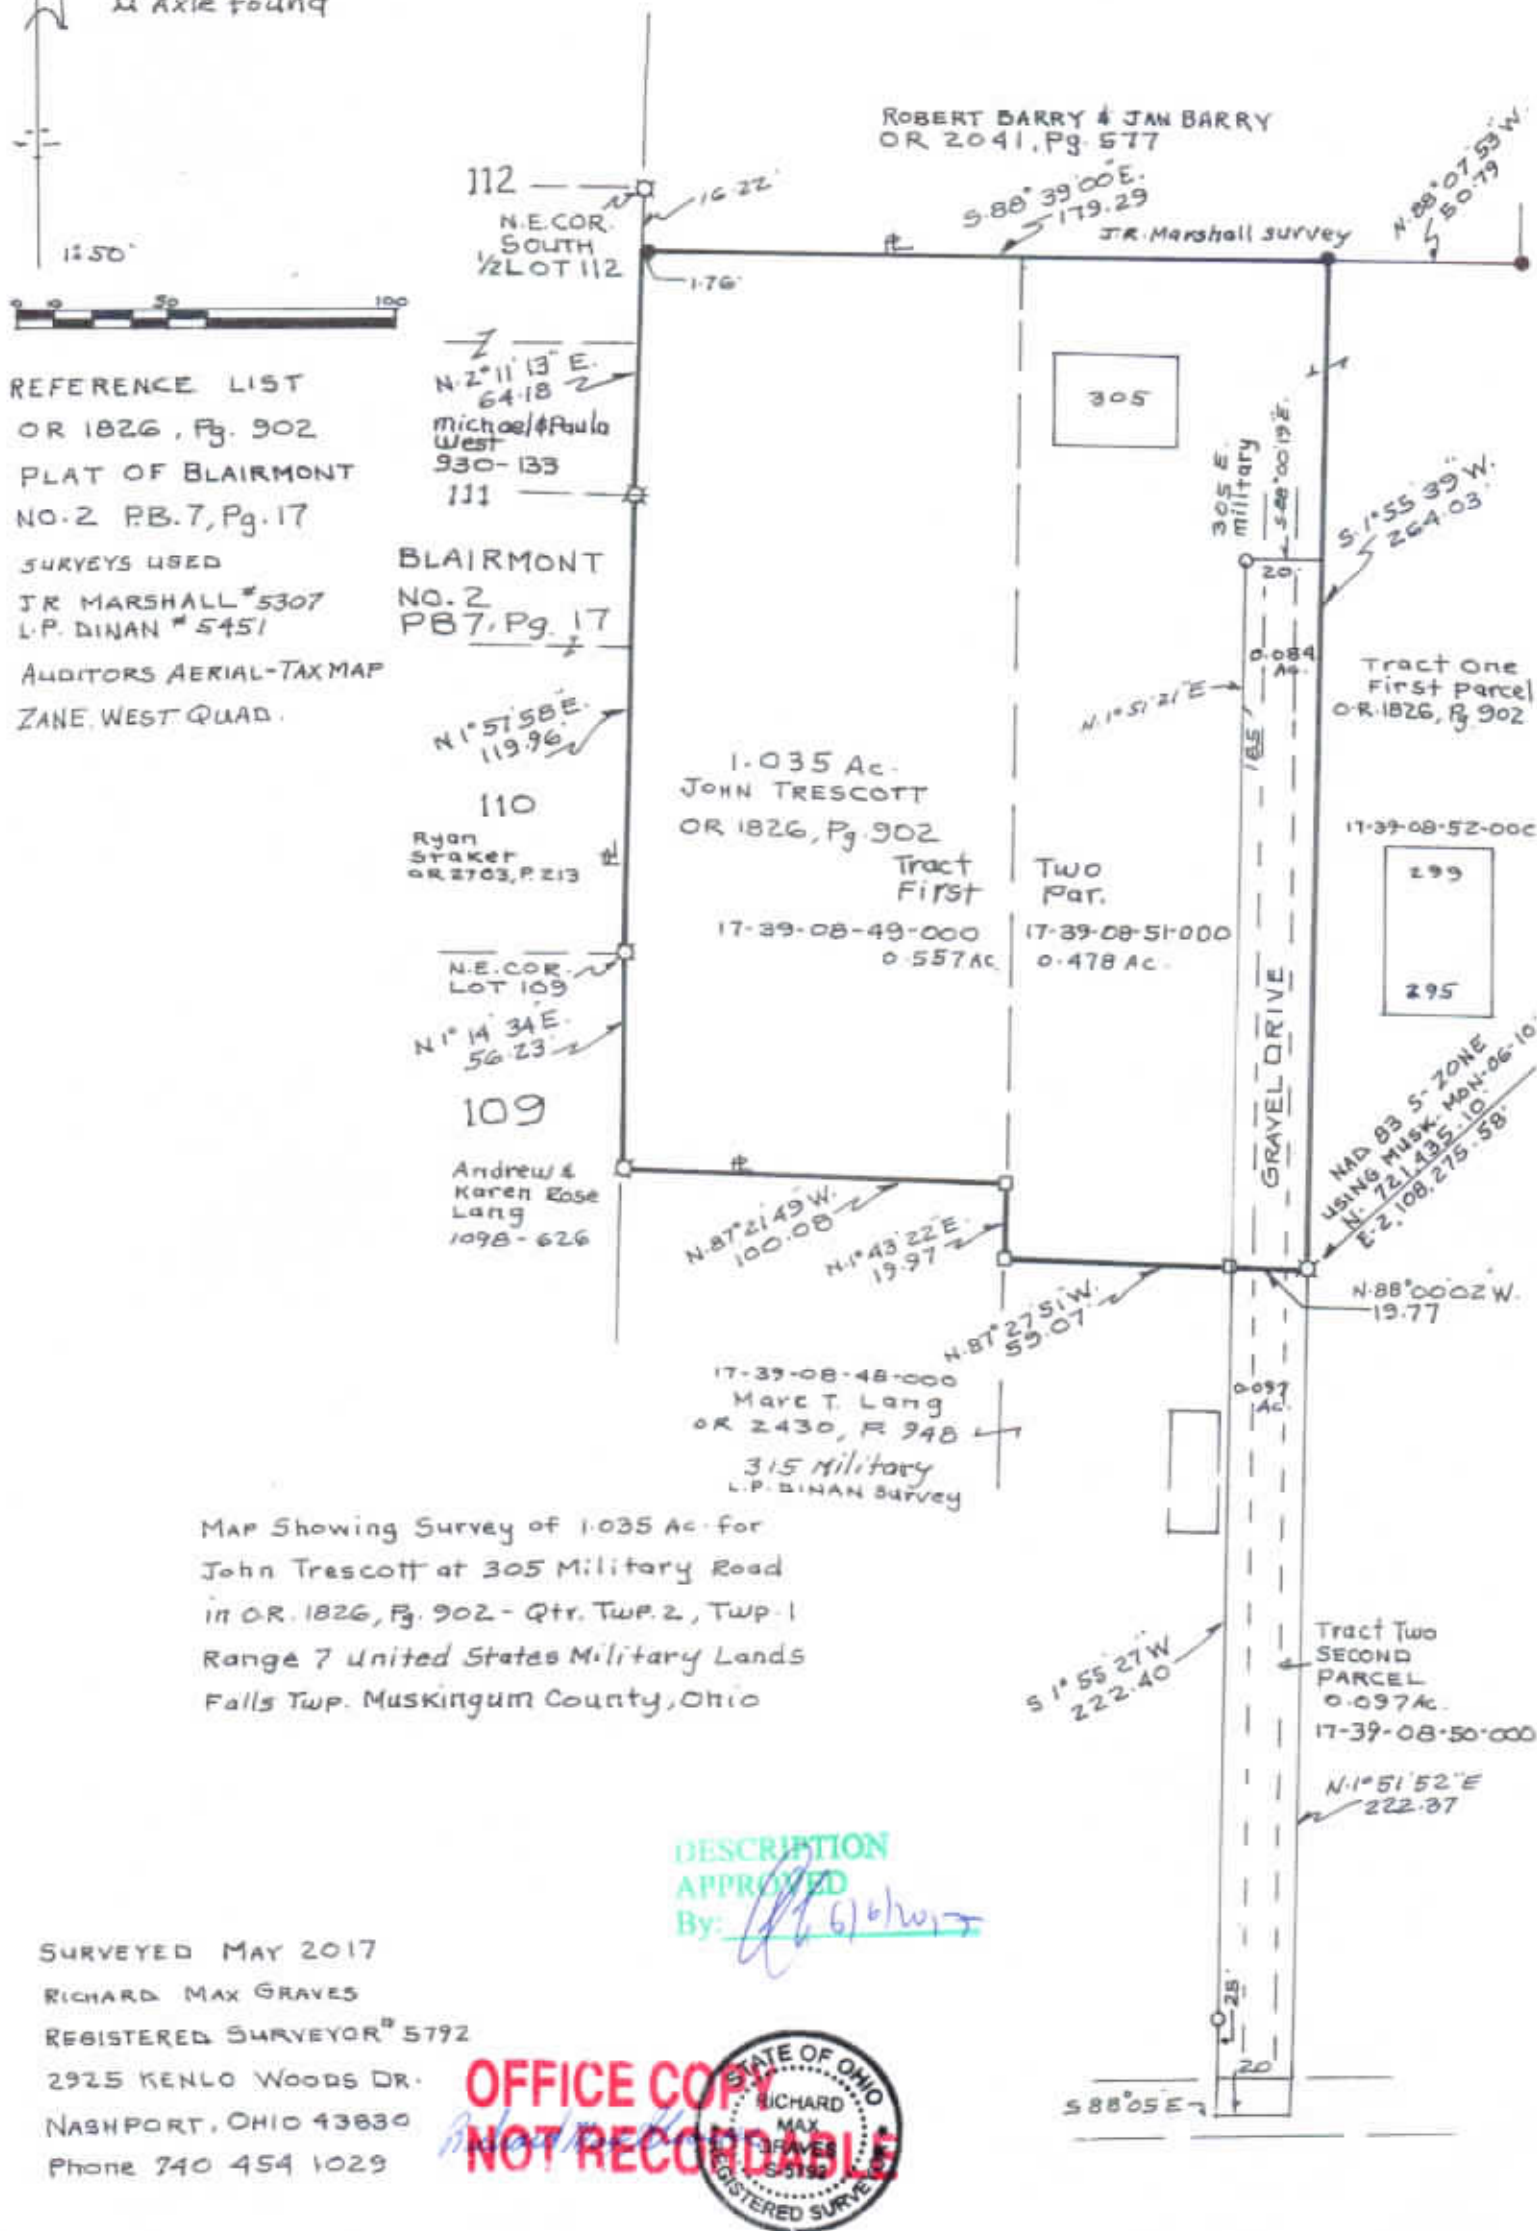 Axle found
1:50'
0 10 50 100
REFERENCE LIST
OR 1826, Pg. 902
PLAT OF BLAIRMONT
NO. 2 P.B. 7, Pg. 17
SURVEYS USED
J R MARSHALL #5307
L.P. DINAN # 5451
AUDITORS AERIAL-TAX MAP
ZANE. WEST QUAD.
ROBERT BARRY & JAN BARRY
OR 2041, Pg. 577
S.88° 39' 00" E.
179.29
J.R. Marshall survey
N.88° 07' 53" W.
50.79
112
16.22'
N.E. COR.
SOUTH
1/2 LOT 112
1.76'
N.2° 11' 13" E.
64.18
Michael & Paula
West
930-133
111
BLAIRMONT
NO. 2
PB 7, Pg. 17
N 1° 57' 58" E.
119.96
110
Ryan
Straker
OR 2703, P. 213
N.E. COR.
LOT 109
N 1° 14' 34" E.
56.23'
109
Andrew &
Karen Rose
Lang
1098-626
305
305 E.
military
S.88° 00' 19" E.
20'
S.1° 55' 39" W.
264.03'
0.084
Ac.
N.1° 51' 21" E
185'
Tract One
First Parcel
O.R. 1826, Pg. 902
1.035 Ac.
JOHN TRESCOTT
OR 1826, Pg. 902
Tract Two
First Par.
17-39-08-49-000
0.557 AC
17-39-08-51-000
0.478 AC.
17-39-08-52-000
299
295
GRAVEL DRIVE
NAD 83 S-ZONE
USING MUSK. MON-06-10
N- 721,435.10'
E-2,108,275.58'
N.87° 21' 49" W.
100.08
N.1° 43' 22" E.
19.97
N.87° 27' 51" W.
59.07'
N.88° 00' 02" W.
19.77
17-39-08-48-000
Marc T. Lang
OR 2430, P. 948
315 Military
L.P. DINAN Survey
0.097
Ac.
Map Showing Survey of 1.035 Ac. for
John Trescott at 305 Military Road
in O.R. 1826, Pg. 902 - Qtr. Twp. 2, Twp. 1
Range 7 United States Military Lands
Falls Twp. Muskingum County, Ohio
S 1° 55' 27" W
222.40
Tract Two
SECOND
PARCEL
0.097 Ac.
17-39-08-50-000
N.1° 51' 52" E
222.37
DESCRIPTION
APPROVED
By: 6/6/2017
25'
20'
S 88° 05' E
SURVEYED MAY 2017
RICHARD MAX GRAVES
REGISTERED SURVEYOR # 5792
2925 KENLO WOODS DR.
NASHPORT, OHIO 43830
Phone 740 454 1029
OFFICE COPY
NOT RECORDABLE
STATE OF OHIO
RICHARD
MAX
GRAVES
S-5792
REGISTERED SURVEYOR